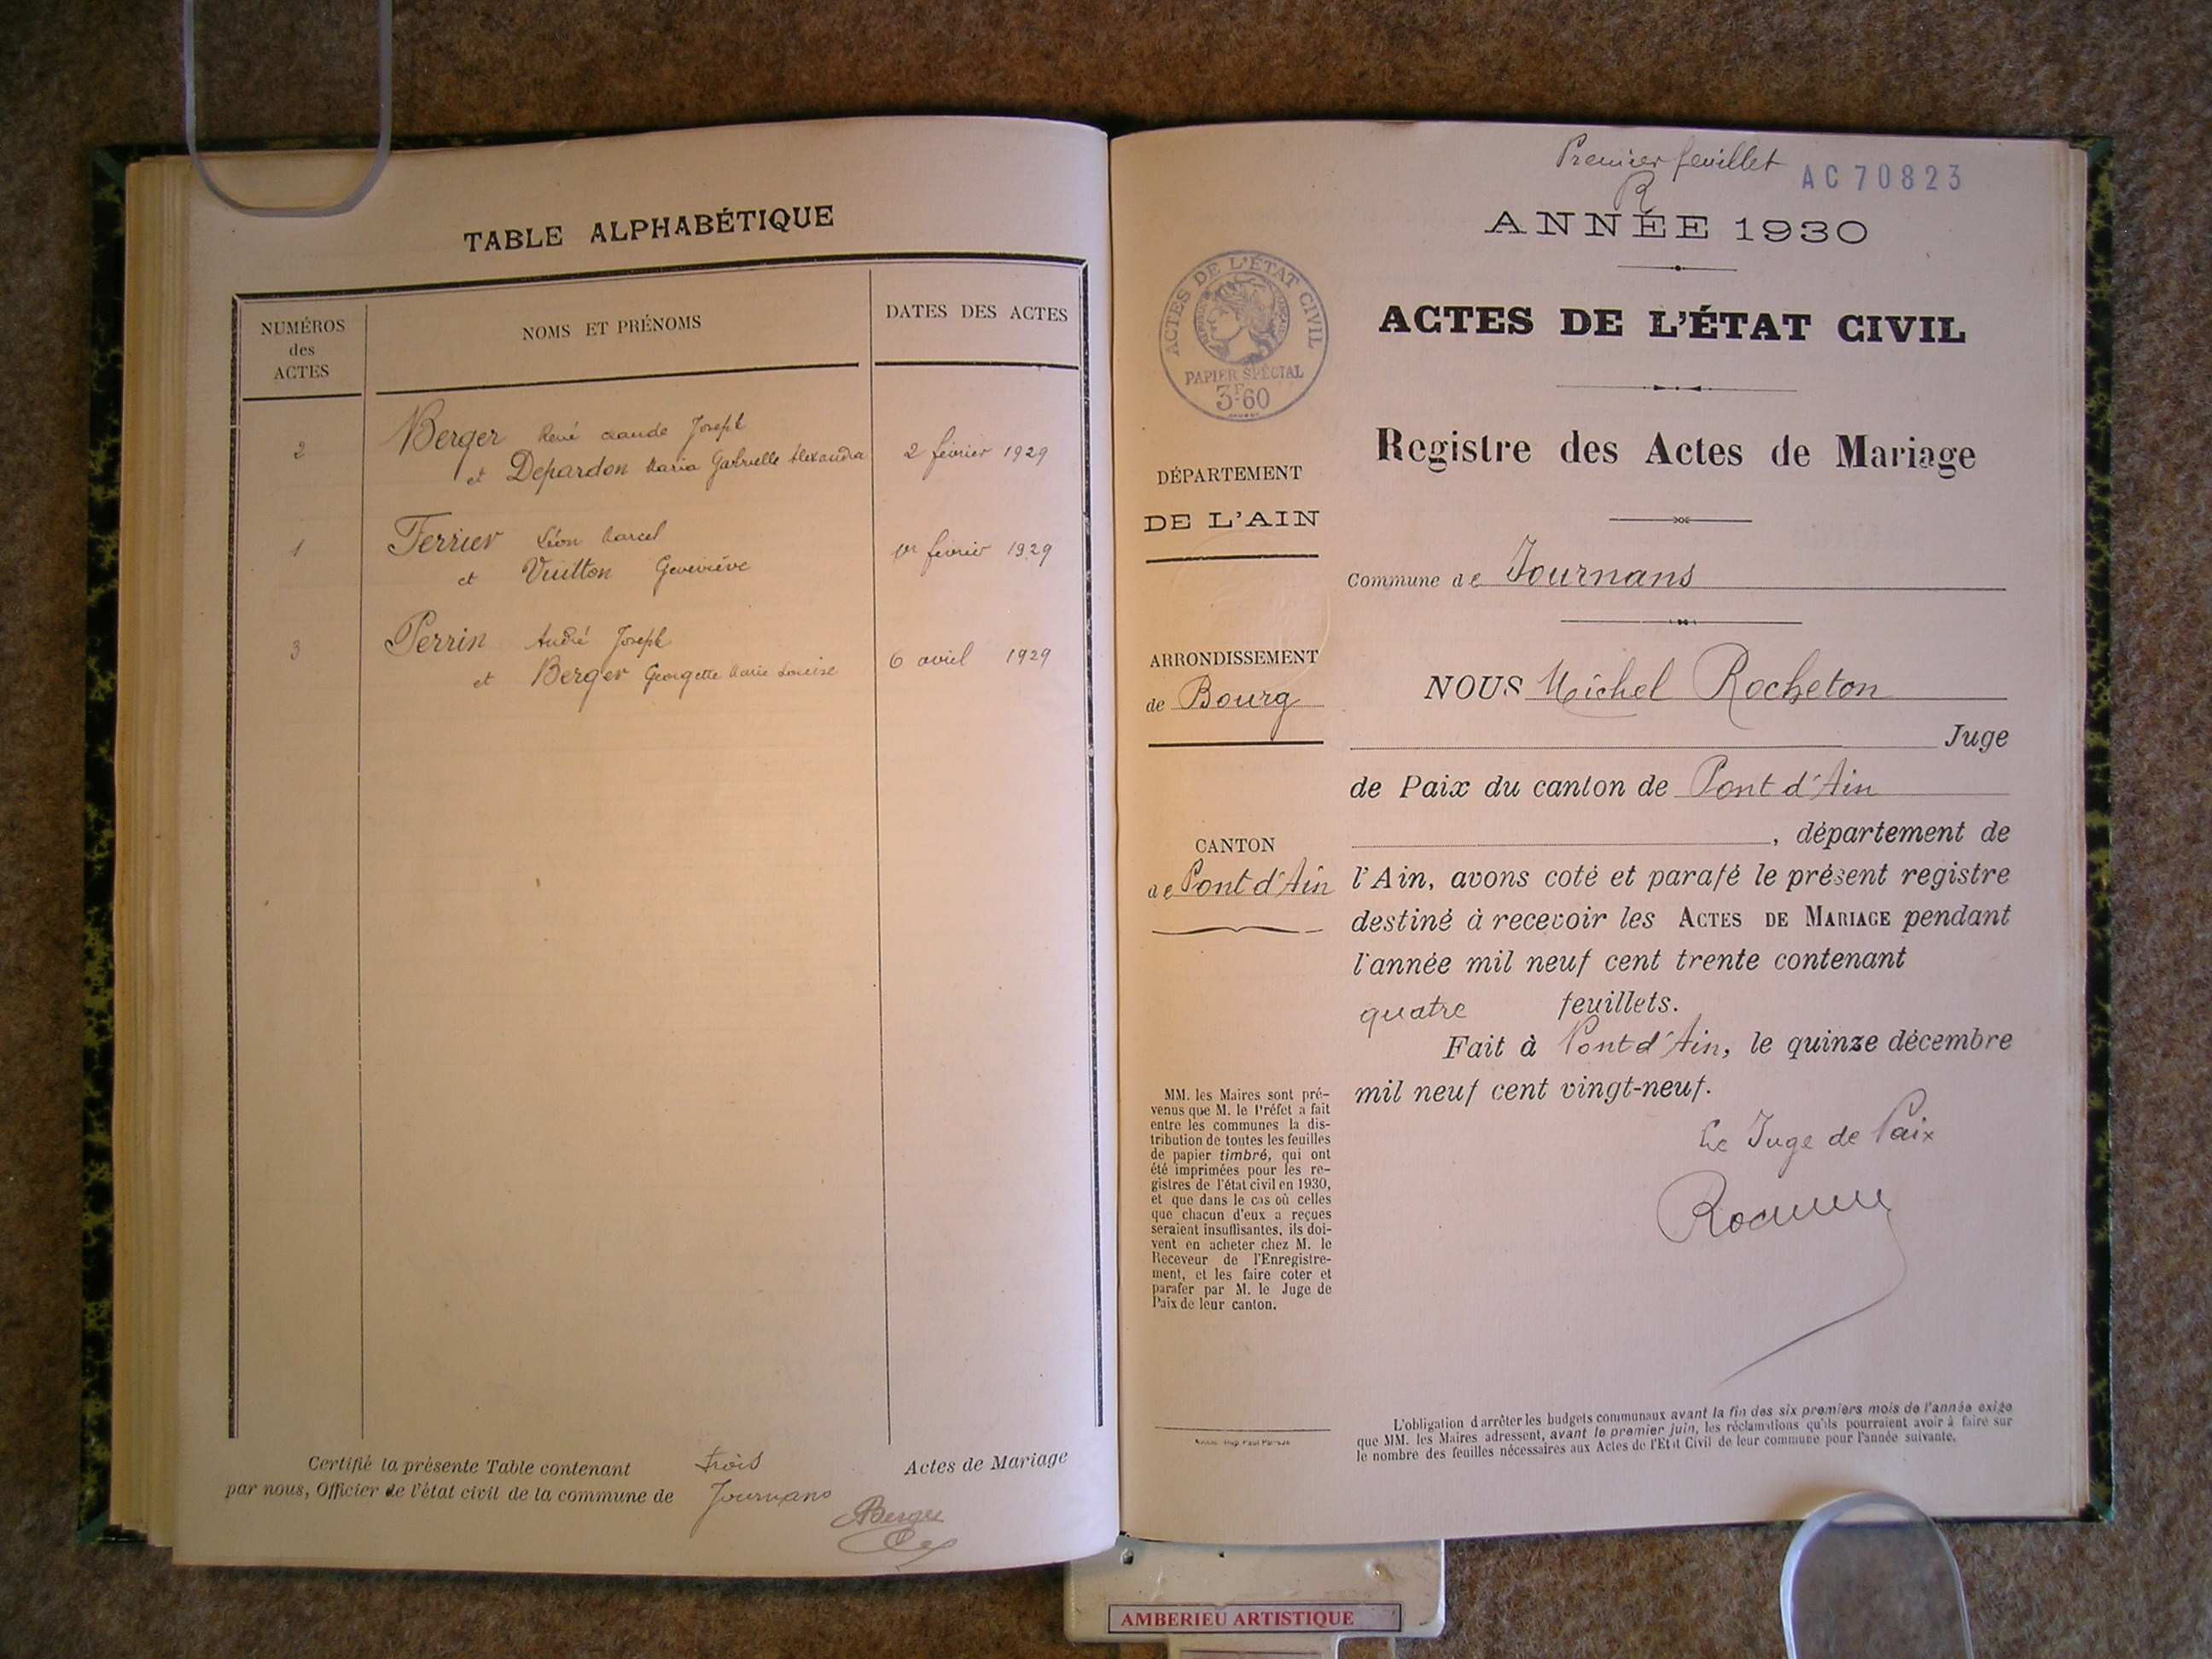 TABLE ALPHABÉTIQUE
NUMÉROS
des
ACTES
NOMS ET PRÉNOMS
DATES DES ACTES
2 Berger René Claude Joseph
et Depardon Maria Gabrielle Alexandra 2 février 1929
1 Ferrier Léon Marcel
et Vuitton Geneviève 1er février 1929
3 Perrin André Joseph
et Berger Georgette Marie Louise 6 avril 1929
Certifié la présente Table contenant trois Actes de Mariage
par nous, Officier de l'état civil de la commune de Journans
Berger
Premier feuillet
R
AC 70823
ANNÉE 1930
ACTES DE L'ÉTAT CIVIL
Registre des Actes de Mariage
ACTES DE L'ÉTAT CIVIL
PAPIER SPÉCIAL
3F60
DÉPARTEMENT
DE L'AIN
ARRONDISSEMENT
de Bourg
CANTON
de Pont d'Ain
MM. les Maires sont pré-
venus que M. le Préfet a fait
entre les communes la dis-
tribution de toutes les feuilles
de papier timbré, qui ont
été imprimées pour les re-
gistres de l'état civil en 1930,
et que dans le cas où celles
que chacun d'eux a reçues
seraient insuffisantes, ils doi-
vent en acheter chez M. le
Receveur de l'Enregistre-
ment, et les faire coter et
parafer par M. le Juge de
Paix de leur canton.
Commune de Journans
NOUS Michel Rocheton
Juge
de Paix du canton de Pont d'Ain
, département de
l'Ain, avons coté et parafé le présent registre
destiné à recevoir les ACTES DE MARIAGE pendant
l'année mil neuf cent trente contenant
quatre feuillets.
Fait à Pont d'Ain, le quinze décembre
mil neuf cent vingt-neuf.
Le Juge de Paix
L'obligation d'arrêter les budgets communaux avant la fin des six premiers mois de l'année exige
que MM. les Maires adressent, avant le premier juin, les réclamations qu'ils pourraient avoir à faire sur
le nombre des feuilles nécessaires aux Actes de l'Etat Civil de leur commune pour l'année suivante.
AMBERIEU ARTISTIQUE